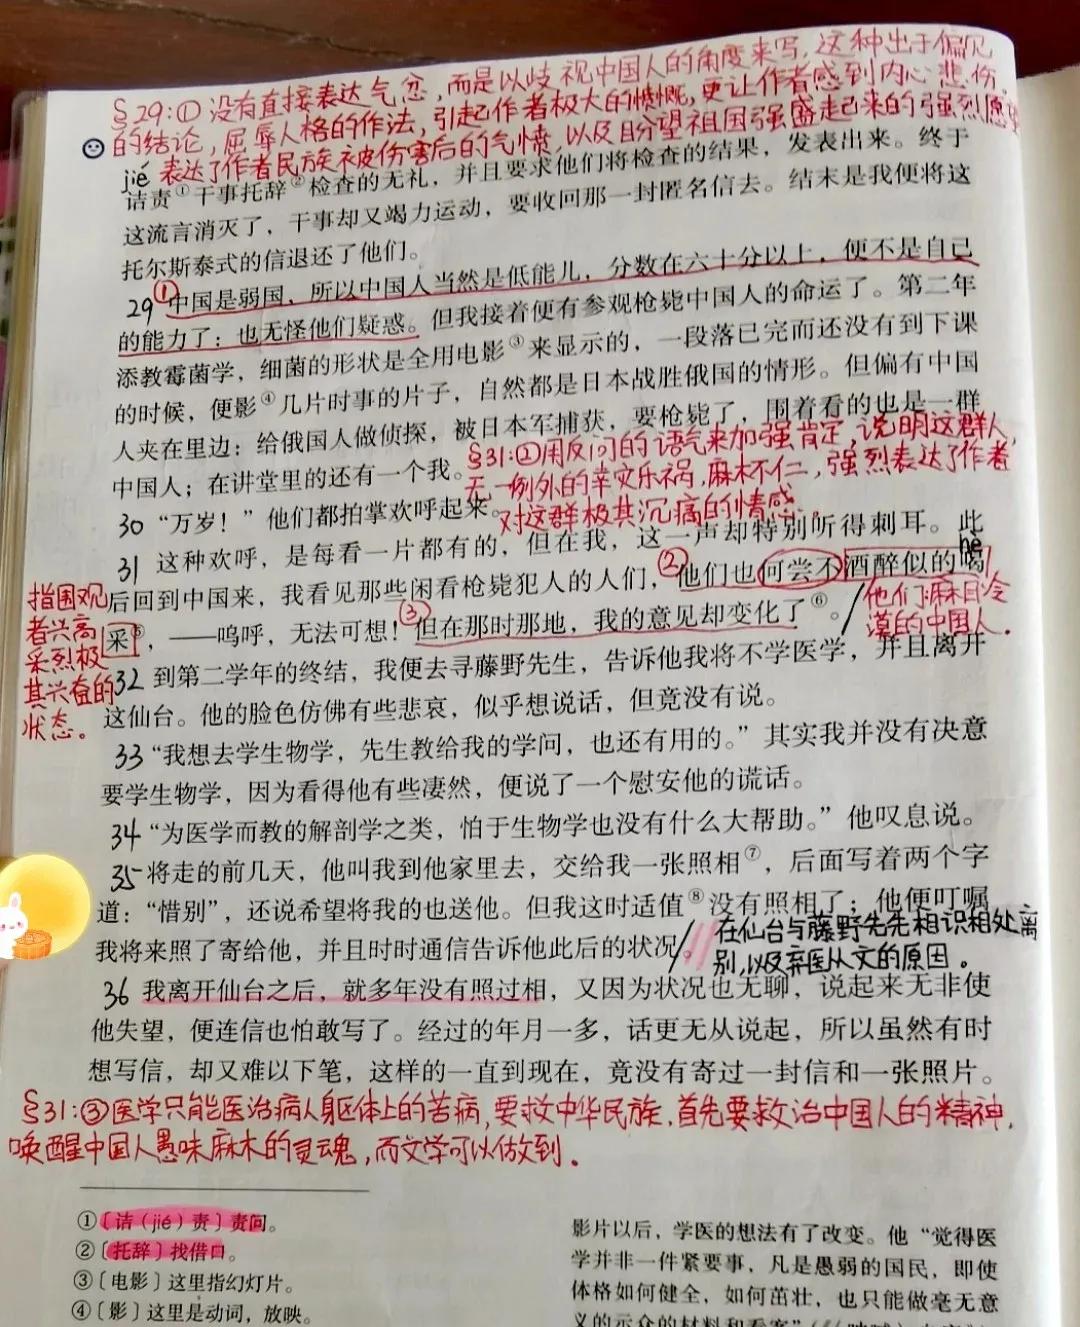 §29:①没有直接表达气忿,而是以歧视中国人的角度来写,这种出于偏见
的结论,屈辱人格的作法,引起作者极大的愤慨,更让作者感到内心悲伤。
表达了作者民族被伤害后的气愤,以及盼望祖国强盛起来的强烈愿望
jié
诘责①干事托辞②检查的无礼，并且要求他们将检查的结果，发表出来。终于
这流言消灭了，干事却又竭力运动，要收回那一封匿名信去。结末是我便将这
托尔斯泰式的信退还了他们。
29 ①中国是弱国，所以中国人当然是低能儿，分数在六十分以上，便不是自己
的能力了：也无怪他们疑惑。但我接着便有参观枪毙中国人的命运了。第二年
添教霉菌学，细菌的形状是全用电影③来显示的，一段落已完而还没有到下课
的时候，便影④几片时事的片子，自然都是日本战胜俄国的情形。但偏有中国
人夹在里边：给俄国人做侦探，被日本军捕获，要枪毙了，围着看的也是一群
中国人；在讲堂里的还有一个我。
§31:②用反问的语气来加强肯定,说明这群人,
无一例外的幸灾乐祸,麻木不仁,强烈表达了作者
对这群极其沉痛的情感.
30 “万岁！”他们都拍掌欢呼起来。
31 这种欢呼，是每看一片都有的，但在我，这一声却特别听得刺耳。此
hè
后回到中国来，我看见那些闲看枪毙犯人的人们，②他们也何尝不酒醉似的喝
采⑤，——呜呼，无法可想！③但在那时那地，我的意见却变化了⑥。
他们:麻目冷
漠的中国人.
指围观
者兴高
采烈极
其兴奋的
状态。
32 到第二学年的终结，我便去寻藤野先生，告诉他我将不学医学，并且离开
这仙台。他的脸色仿佛有些悲哀，似乎想说话，但竟没有说。
33 “我想去学生物学，先生教给我的学问，也还有用的。”其实我并没有决意
要学生物学，因为看得他有些凄然，便说了一个慰安他的谎话。
34 “为医学而教的解剖学之类，怕于生物学也没有什么大帮助。”他叹息说。
35 将走的前几天，他叫我到他家里去，交给我一张照相⑦，后面写着两个字
道：“惜别”，还说希望将我的也送他。但我这时适值⑧没有照相了；他便叮嘱
我将来照了寄给他，并且时时通信告诉他此后的状况。
在仙台与藤野先先相识相处离
别,以及弃医从文的原因。
36 我离开仙台之后，就多年没有照过相，又因为状况也无聊，说起来无非使
他失望，便连信也怕敢写了。经过的年月一多，话更无从说起，所以虽然有时
想写信，却又难以下笔，这样的一直到现在，竟没有寄过一封信和一张照片。
§31:③医学只能医治病人躯体上的苦病,要救中华民族,首先要救治中国人的精神,
唤醒中国人愚昧麻木的灵魂,而文学可以做到.
①〔诘（jié）责〕责问。
②〔托辞〕找借口。
③〔电影〕这里指幻灯片。
④〔影〕这里是动词，放映。
影片以后，学医的想法有了改变。他“觉得医
学并非一件紧要事，凡是愚弱的国民，即使
体格如何健全，如何茁壮，也只能做毫无意
义的示众的材料和看客”